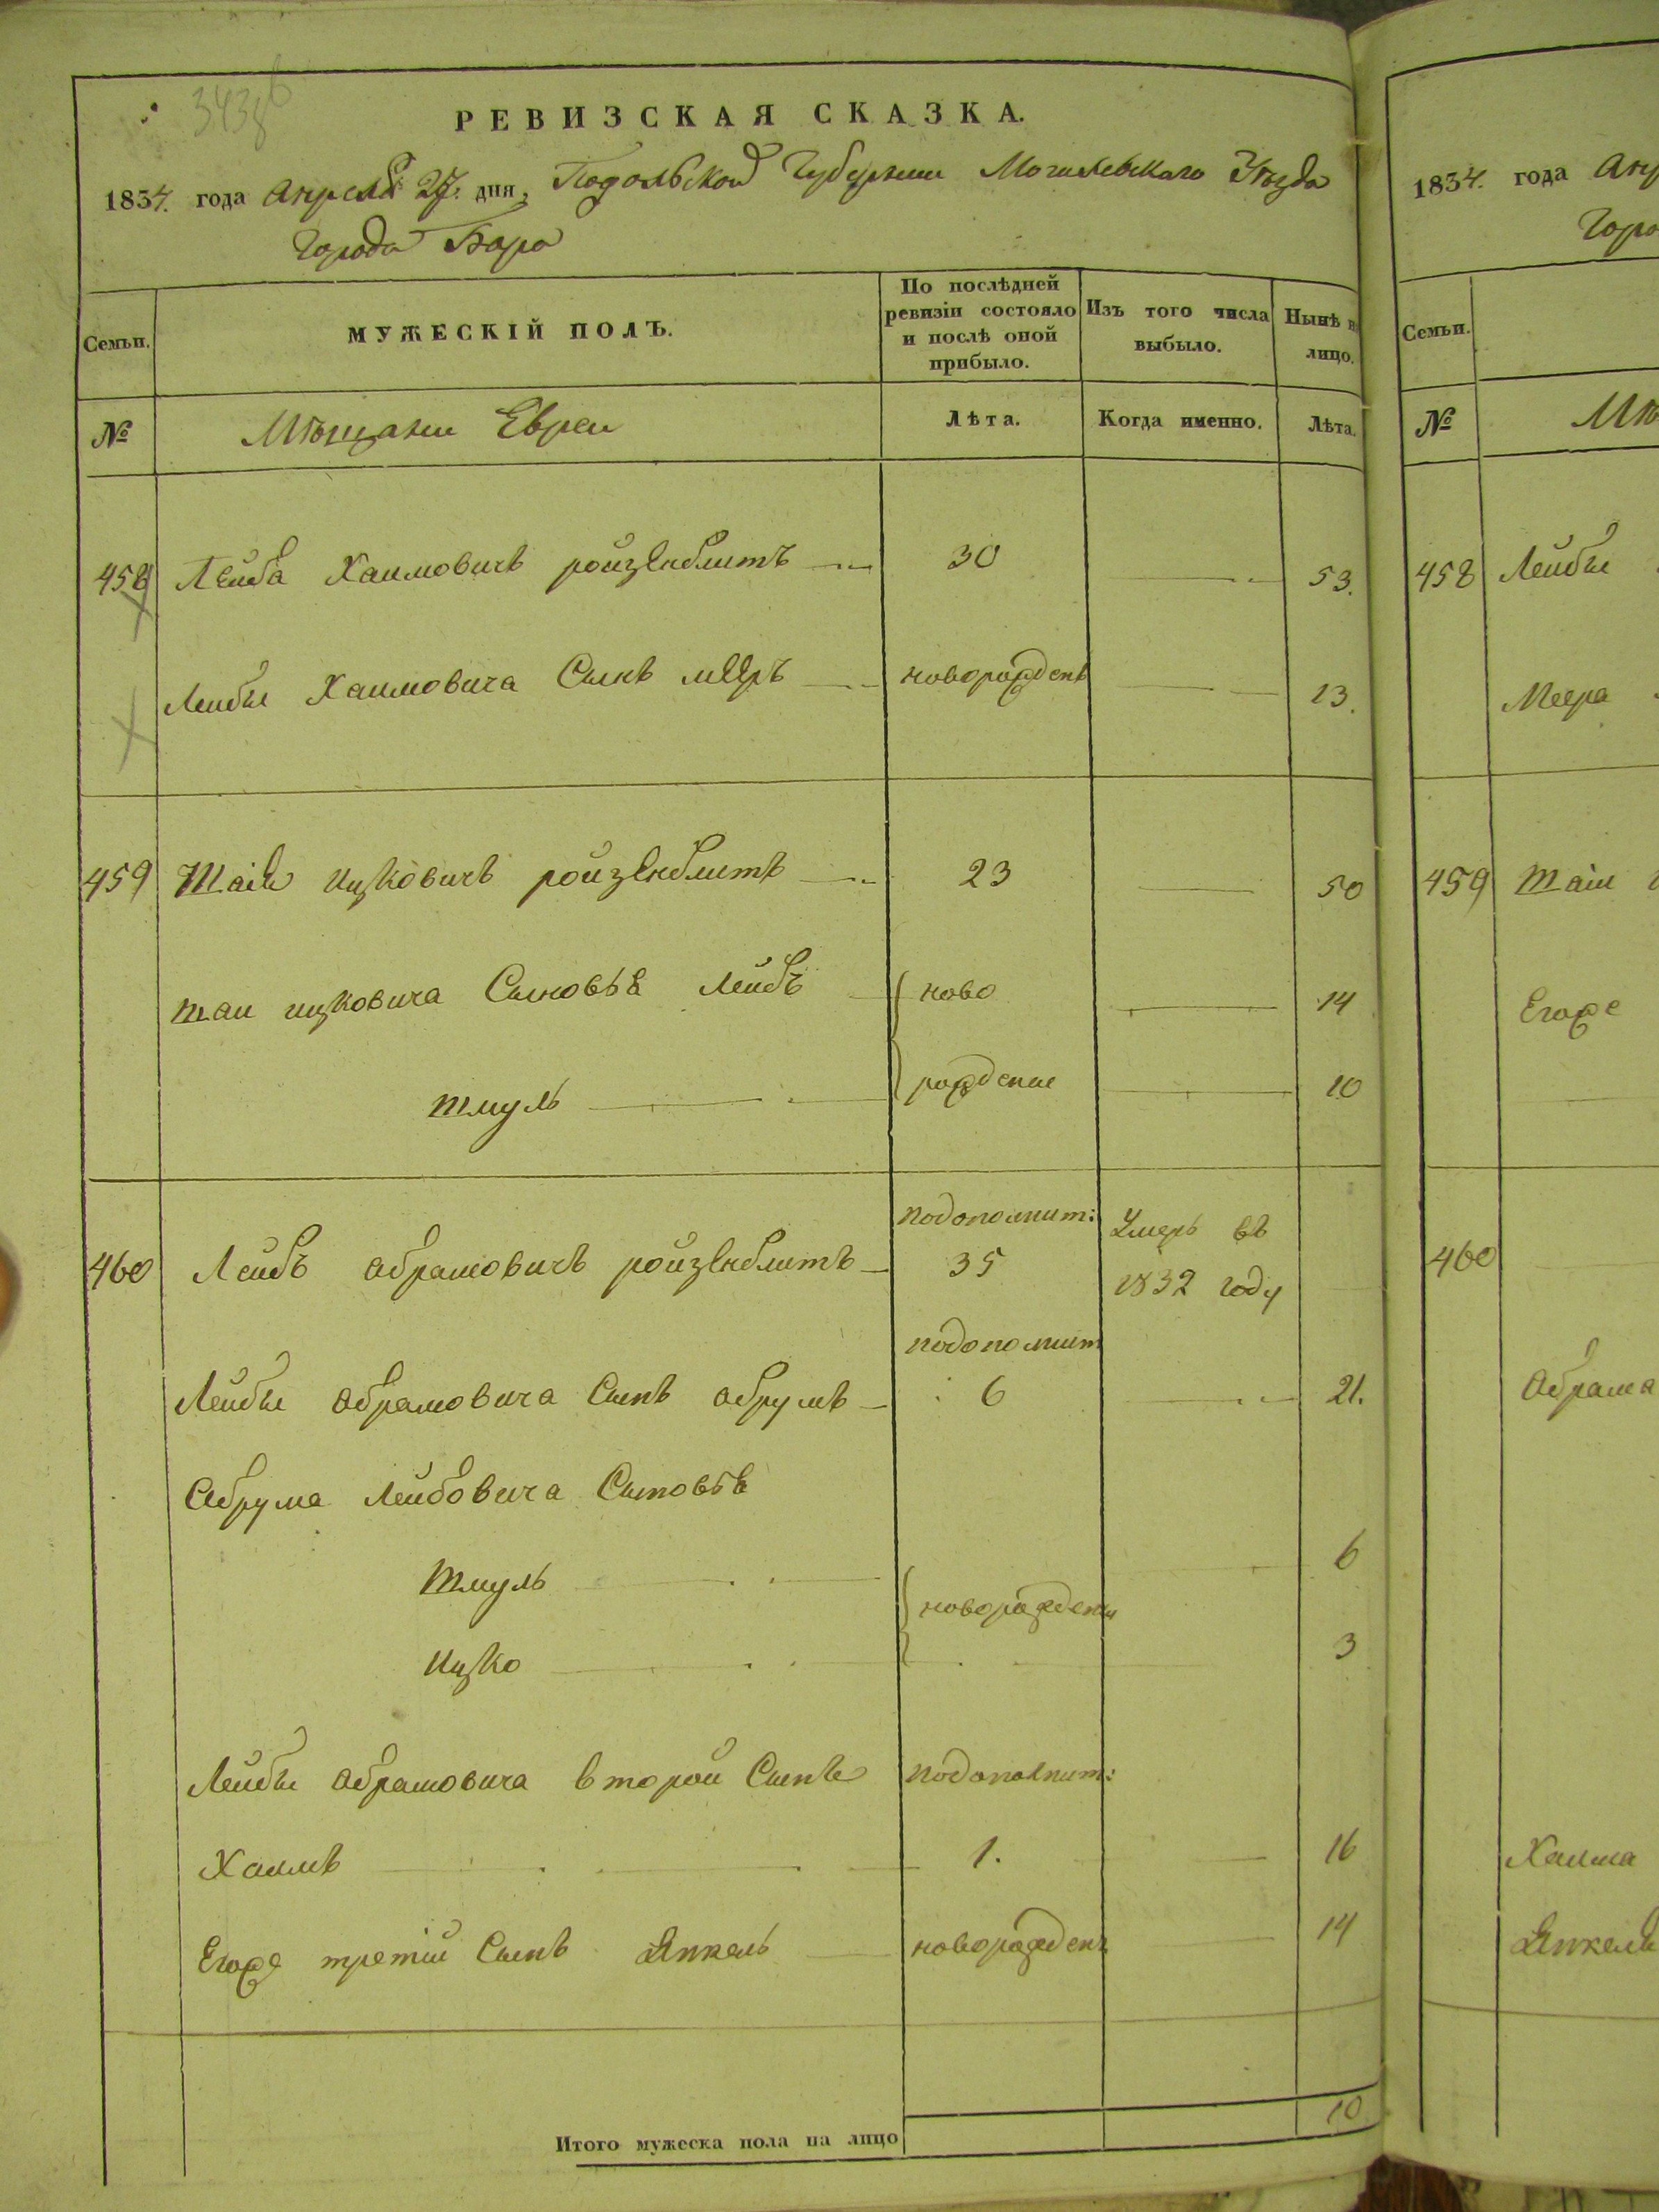 3438
РЕВИЗСКАЯ СКАЗКА.
1834. года Апреля 27. дня, Подольской Губернии Могилевскаго Уезда
Города Бара
Семьи.
МУЖЕСКІЙ ПОЛЪ.
По послѣдней ревизіи состояло и послѣ оной прибыло.
Изъ того числа выбыло.
Нынѣ на лицо.
№
Мѣщани Евреи
Лѣта.
Когда именно.
Лѣта.
458 Лейба Хаимовичъ ройзенблитъ 30 53.
Лейбы Хаимовича Сынъ мееръ новорожденъ 13.
459 Шаія ицковичъ ройзенблитъ 23 50
шаи ицковича Сыновья Лейбъ ново 14
шмуль рожденые 10
460 Лейбъ абрамовичъ ройзенблитъ подополнит: 35 Умеръ въ 1832 году
Лейбы абрамовича Сынъ абрумъ подополнит 6 21.
Абрума Лейбовича Сыновья
Шмуль 6
новорождены
Ицко 3
Лейбы абрамовича второй Сынъ подополнит:
Хаимъ 1. 16
Егоже третій Сынъ Янкель новорожденъ 14
Итого мужеска пола на лицо 10
1834. года Апр
Горо
Семьи.
№ Мѣ
458 Лейбы
Меера
459 шаіи
Егоже
460
Абрама
Хаима
Янкеля